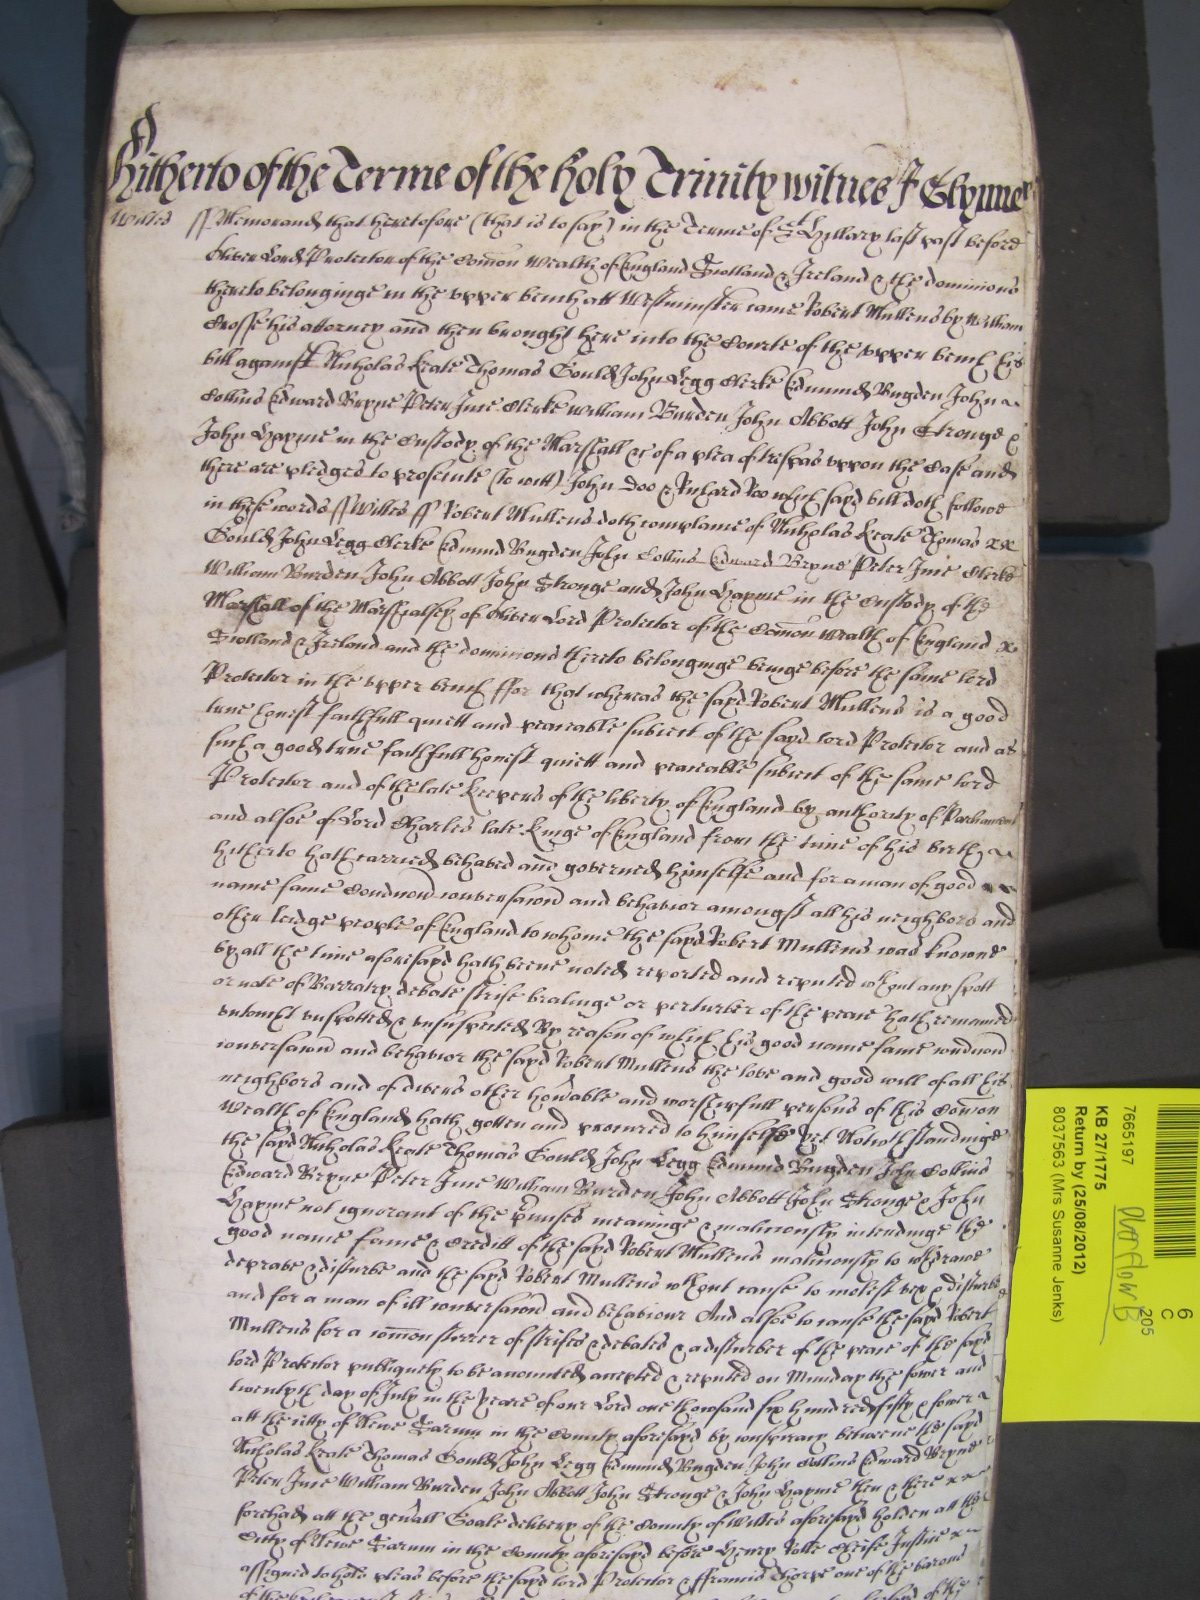 Hitherto of the Terme of the holy Trinity witnes J Glynne
Wiltes ss Memorand that heretofore (that is to say) in the Terme of St Hillary last past before
Oliver Lord Protector of the Comon Wealth of England Scotland & Ireland & the dominions
thereto belonginge in the upper bench att Westminster came Robert Mullens by William
Crosse his attorney and then brought here into the Courte of the upper bench his
bill against Nicholas Keate Thomas Gould John Legg Clerke Edmund Bugden John
Collins Edward Bryne Peter Ince Clerke William Burden John Abbott John Stronge &
John Hayme in the Custody of the Marshall &c of a plea of trespas uppon the Case and
there are pledges to prosecute (to witt) John Doo & Richard Roo which sayd bill doth followe
in these words ss Wiltes ss Robert Mullens doth complaine of Nicholas Keate Thomas
Gould John Legg Clerke Edmund Bugden John Collins Edward Bryne Peter Ince Clerke
William Burden John Abbott John Stronge and John Hayme in the Custody of the
Marshall of the Marshalsey of Oliver Lord Protector of the Comon Wealth of England
Scotland & Ireland and the dominions thereto belonginge beinge before the same lord
Protector in the upper bench ffor that whereas the sayd Robert Mullens is a good
true honest faithfull quiett and peaceable subiect of the sayd lord Protector and as
such a good true faithfull honest quiett and peaceable subiect of the same lord
Protector and of the late keepers of the liberty of England by authority of Parliament
and alsoe of Lord Charles late Kinge of England from the time of his birth
hitherto hath carried behaved and governed himselfe and for a man of good
name fame Condicion conversacion and behavior amongst all his neighbors and
other leidge people of England to whome the sayd Robert Mullens was knowne
by all the time aforesayd hath beene noted reported and reputed wthout any spott
or note of Barratry debate strife bralinge or perturber of the peace hath remained
untoucht unspotted & unsuspected By reason of which his good name fame condicion
conversacion and behavior the sayd Robert Mullens the love and good will of all his
neighbors and of divers other honable and worshipfull persons of this Comon
Wealth of England hath gotten and procured to himselfe yet Notwithstandinge
the sayd Nicholas Keate Thomas Gould John Legg Edmund Bugden John Collins
Edward Bryne Peter Ince William Burden John Abbott John Stronge & John
Hayme not ignorant of the pmises meaninge & maliciously intendinge the
good name fame & Creditt of the sayd Robert Mullens maliciously to wthdrawe
deprave & disturbe and the sayd Robert Mullens wthout cause to molest vex & disturbe
and for a man of ill conversacion and behaviour And alsoe to cause the sayd Robert
Mullens for a comon stirrer of strifes & debates & a disturber of the peace of the sayd
lord Protector publiquely to be accounted accepted & reputed on Munday the fower and
twentyth day of July in the yeare of our Lord one thowsand six hundred fifty & fower
att the citty of Newe Sarum in the County aforesayd by conspiracy betweene the sayd
Nicholas Keate Thomas Gould John Legg Edmund Bugden John Collins Edward Bryne
Peter Ince William Burden John Abbott John Stronge & John Hayme then & there
forehad att the genall Goale delivery of the County of Wiltes aforesayd holden att the
Citty of Newe Sarum in the County aforesayd before Henry Rolle Cheife Justice
assigned to hold pleas before the sayd lord Protector & ffrancis Thorpe one of the barons
7665197
KB 27/1775
Return by (25/08/2012)
8037563 (Mrs Susanne Jenks)
6
C
205